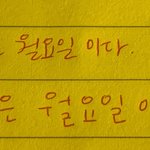 월요일 이다.
은 월요일 이